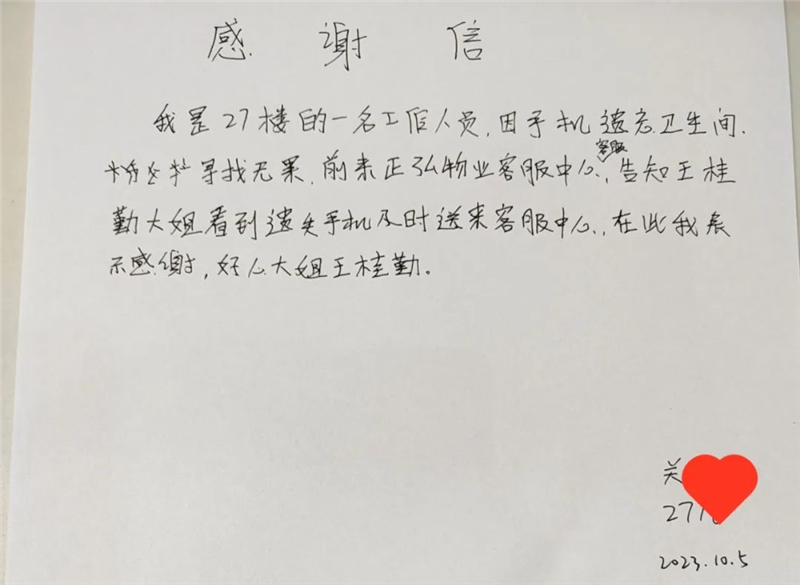 感谢信
我是27楼的一名工作人员,因手机遗忘卫生间.
寻找无果,前来正弘物业客服中心,客服告知王桂
勤大姐看到遗失手机及时送来客服中心,在此我表
示感谢,好人大姐王桂勤。
关
271
2023.10.5